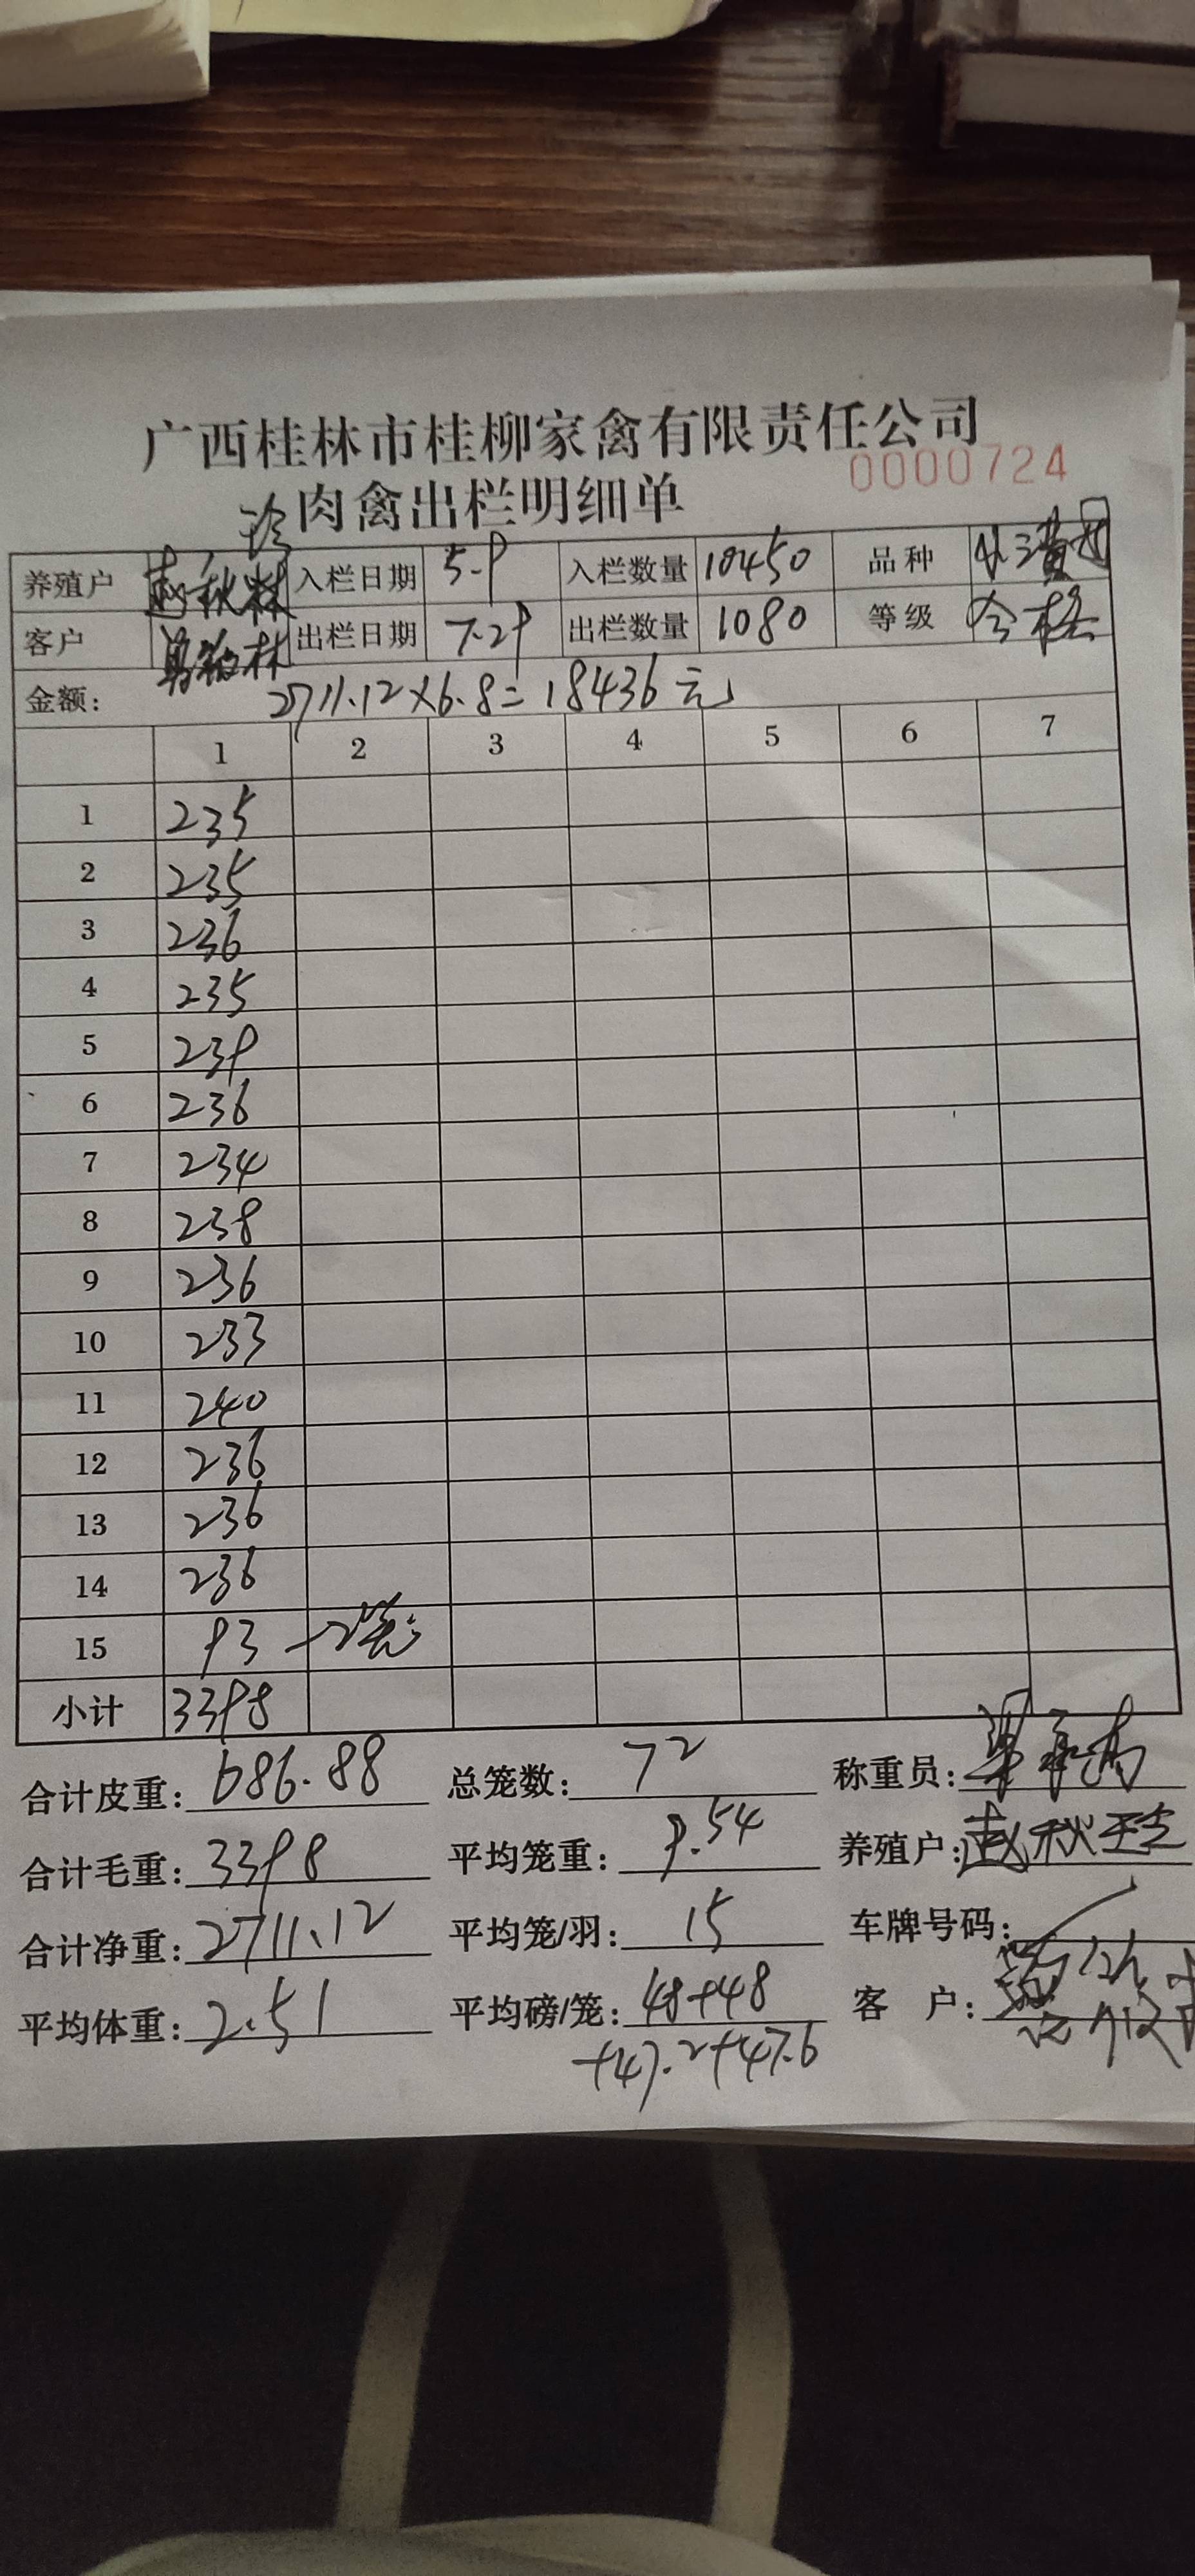 广西桂林市桂柳家禽有限责任公司
0000724
肉禽出栏明细单
珍
养殖户 赵秋林 入栏日期 5.9 入栏数量 10450 品种 小三黄母
客户 林 出栏日期 7.29 出栏数量 1080 等级 合格
金额: 2711.12×6.8=18436元
1 2 3 4 5 6 7
1 235
2 235
3 236
4 235
5 239
6 236
7 234
8 238
9 236
10 233
11 240
12 236
13 236
14 236
15 93 —2笼
小计 3398
合计皮重: 686.88 总笼数: 72 称重员:
合计毛重: 3398 平均笼重: 9.54 养殖户: 赵秋珍
合计净重: 2711.12 平均笼/羽: 15 车牌号码: /
平均体重: 2.51 平均磅/笼: 48+48 客 户:
+47.2+47.6